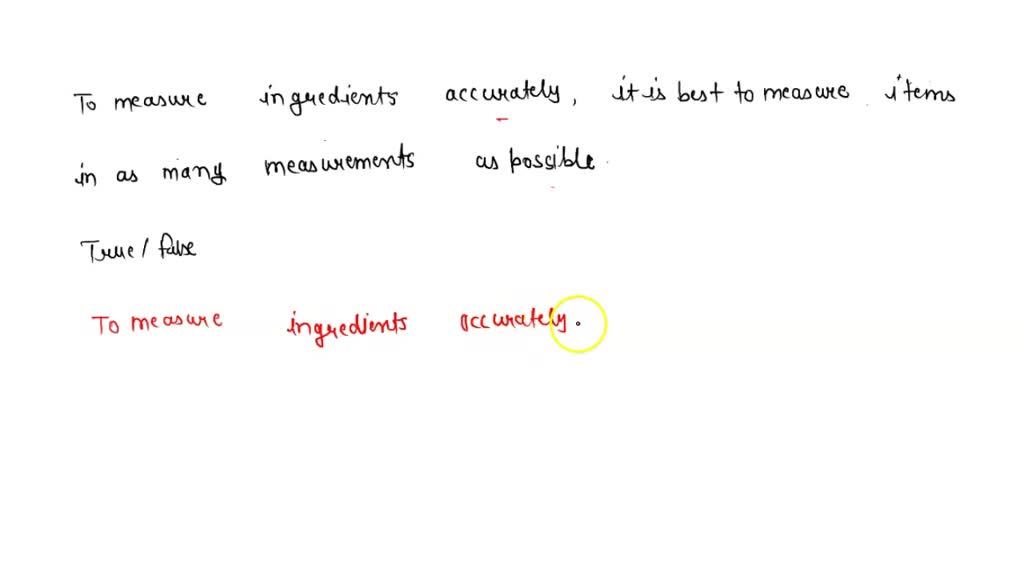 To measure ingredients accurately, it is best to measure items
in as many measurements as possible.
True / false
To measure ingredients accurately.